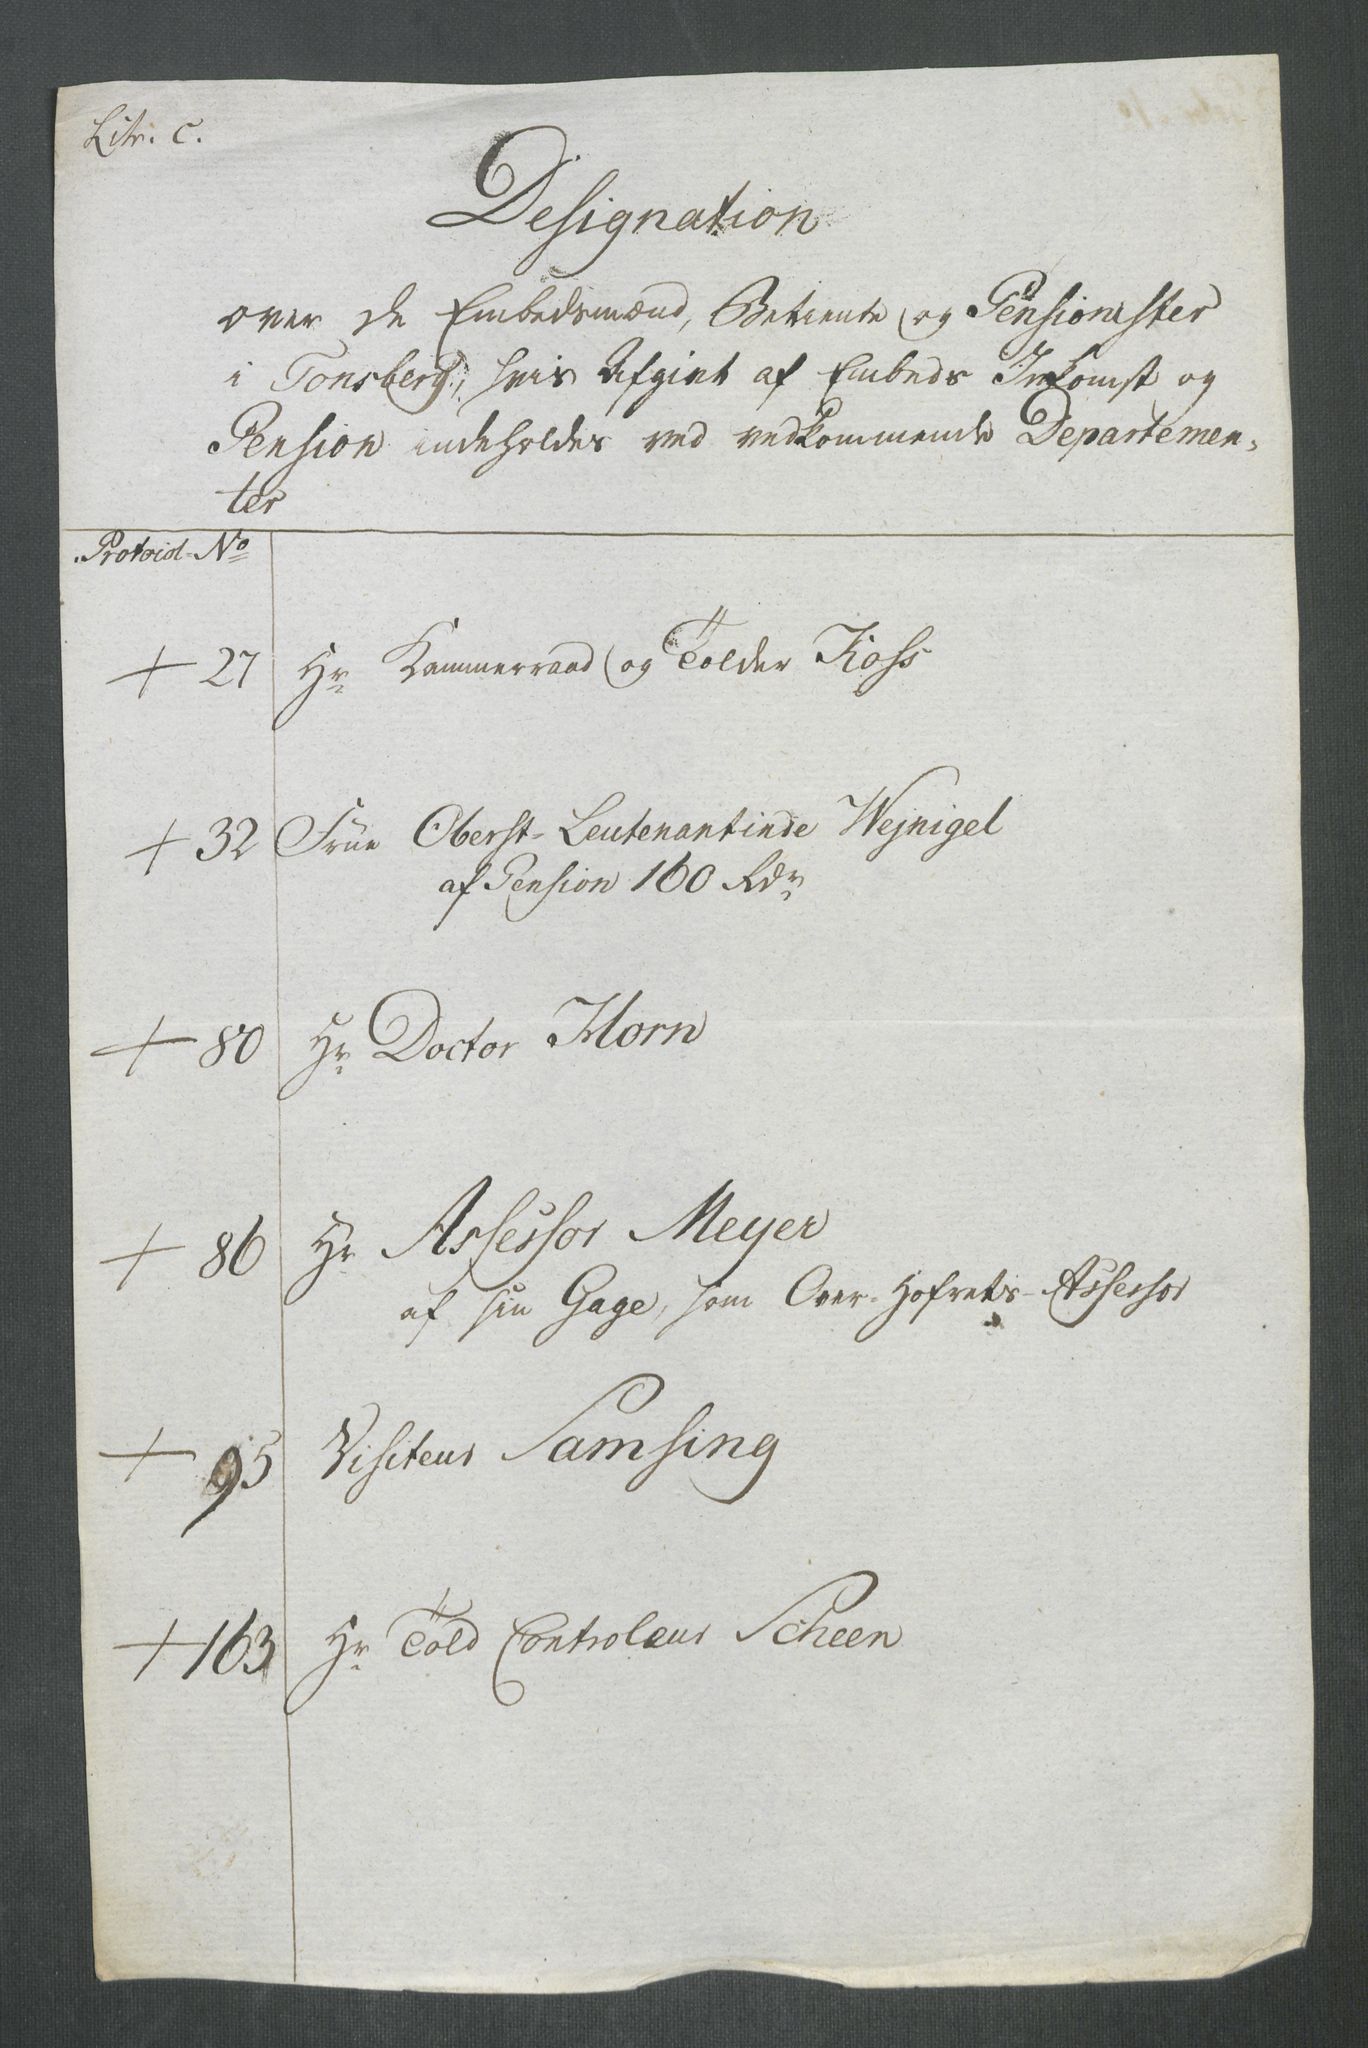 Litr. C.
Designation
over de Embedsmænd, Betiente og Pensionister
i Tonsberg, hvis Afgivt af Embeds Inkomst og
Pension indeholdes ved vedkommende Departemen-
ter
Protocol No
+ 27 Hr Kammerraad og Tolder Koss
+ 32 Frue Oberst-Leutenantinde Wejnigel
af Pension 160 Rdr
+ 80 Hr Doctor Horn
+ 86 Hr Assessor Meyer
af sin Gage, som Over-Hofrets-Assessor
+ 95 Visiteur Samsing
+ 163 Hr Told Controleur Scheen